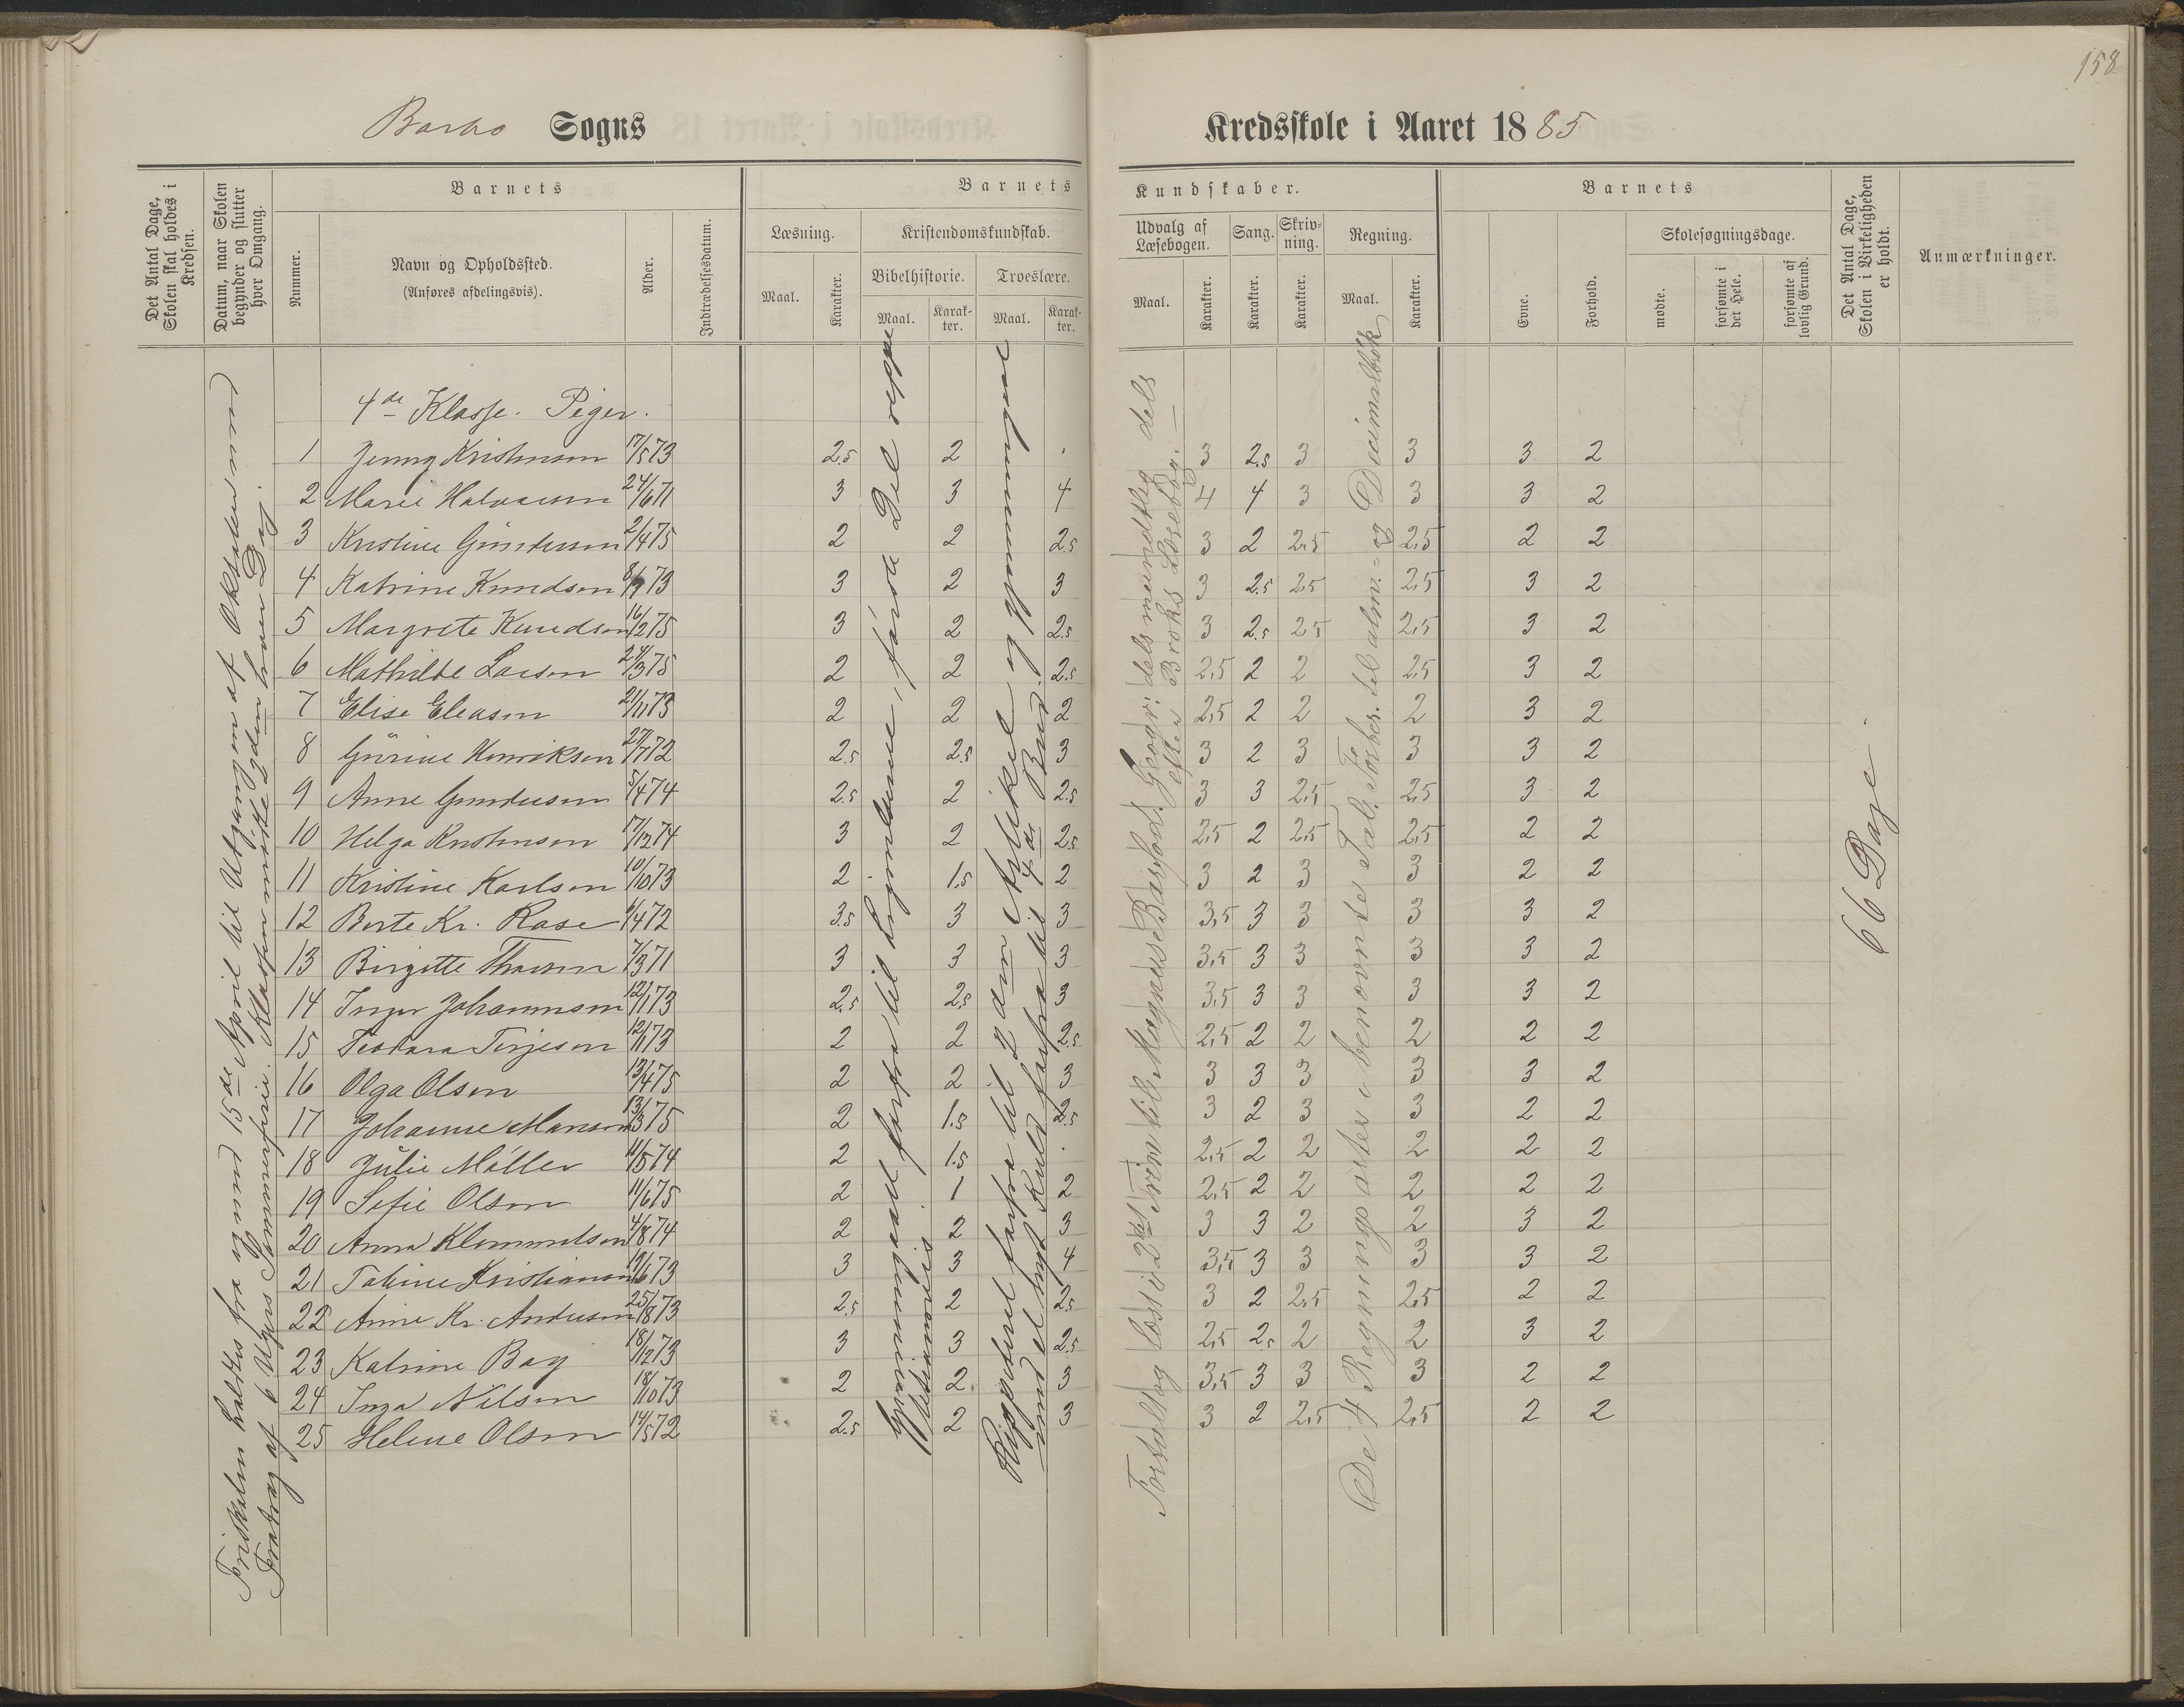 158
Barbo Sogns
Kredsskole i Aaret 1885
Det Antal Dage, Skolen skal holdes i Kredsen.
Datum, naar Skolen begynder og slutter hver Omgang.
Barnets
Nummer.
Navn og Opholdssted.
(Anføres afdelingsvis).
Alder.
Indtrædelsesdatum.
Barnets Kundskaber.
Læsning.
Maal.
Karakter.
Kristendomskundskab.
Bibelhistorie.
Maal.
Karakter.
Troeslære.
Maal.
Karakter.
Udvalg af Læsebogen.
Maal.
Karakter.
Sang.
Karakter.
Skrivning.
Karakter.
Regning.
Maal.
Karakter.
Barnets
Evne.
Forhold.
Skolesøgningsdage.
mødte.
forsømte i det Hele.
forsømte af lovlig Grund.
Det Antal Dage, Skolen i Virkeligheden er holdt.
Anmærkninger.
Friskolen holdtes fra og med 15de April til Udgangen af Oktober med
Fradrag af 6 Ugers Sommerferie. Klassen mødte i den hver Dag.
Gjennemgaaet forfra til Lignelserne, første Del
Repeteret forfra til 2den Artikel og gjennemgaaet
Fortalt og læst i 2det Trin til Magnus Barfod. Geogr: dels mundtlig dels
efter Broks Læsebog.
De 4 Regningsarter i benævnte Tal. Forber. til alm.- og Decimalbrøk
66 Dage.
4de Klasse. Piger.
1 Jenny Kristensen 17/5 73 2.5 2 3 2.5 3 3 3 2
2 Marie Halvorsen 24/6 71 3 3 4 4 4 3 3 3 2
3 Kristine Gundersen 2/4 75 2 2 2.5 3 2 2,5 2,5 2 2
4 Katrine Knudsen 8/9 73 3 2 3 3 2.5 2,5 2,5 3 2
5 Margrete Knudsen 16/2 75 3 2 2.5 3 2.5 2,5 2,5 3 2
6 Mathilde Larsen 24/3 75 2 2 2.5 2,5 2 2 2,5 3 2
7 Elise Eleasen 21/11 73 2 2 2 2,5 2 2 2 3 2
8 Gurine Henriksen 27/7 72 2.5 2.5 3 3 2 3 3 3 2
9 Anne Gundersen 5/4 74 2.5 2 2.5 3 3 2,5 2,5 3 2
10 Helga Kristensen 17/12 74 3 2 2.5 2,5 2 2,5 2,5 2 2
11 Kristine Karlsen 10/10 73 2 1.5 2 3 2 3 3 2 2
12 Berte Kr. Rase /4 72 3.5 3 3 3,5 3 3 3 3 2
13 Birgitte Thorsen 7/3 71 3 3 3 3,5 3 3 3 3 2
14 Inger Johannesen 12/1 73 2.5 2.5 3 3,5 3 3 3 3 2
15 Teodora Terjesen 12/11 73 2 2 2.5 2,5 2 2 2 2 2
16 Olga Olsen 13/4 75 2 2 3 3 3 3 3 3 2
17 Johanne Hansen 13/3 75 2 1.5 2.5 3 2 3 3 2 2
18 Julie Møller 11/5 74 2 1.5 2,5 2 2 2 2 2
19 Sofie Olsen 11/6 75 2 1 2 2,5 2 2 2 2 2
20 Anna Klemmetsen 4/8 74 2 2 3 3 3 2 2 3 2
21 Tabine Kristiansen 19/6 73 3 3 4 3,5 3 3 3 3 2
22 Anne Kr. Andersen 25/8 73 2.5 2 2.5 3 2 2,5 2,5 2 2
23 Katrine Bay 18/12 73 3 3 2.5 2,5 2.5 2 2 3 2
24 Inga Nilsen 18/10 73 2 2. 3 3,5 3 3 3 2 2
25 Helene Olsen 14/5 72 2.5 2 3 3 2 2,5 2,5 2 2